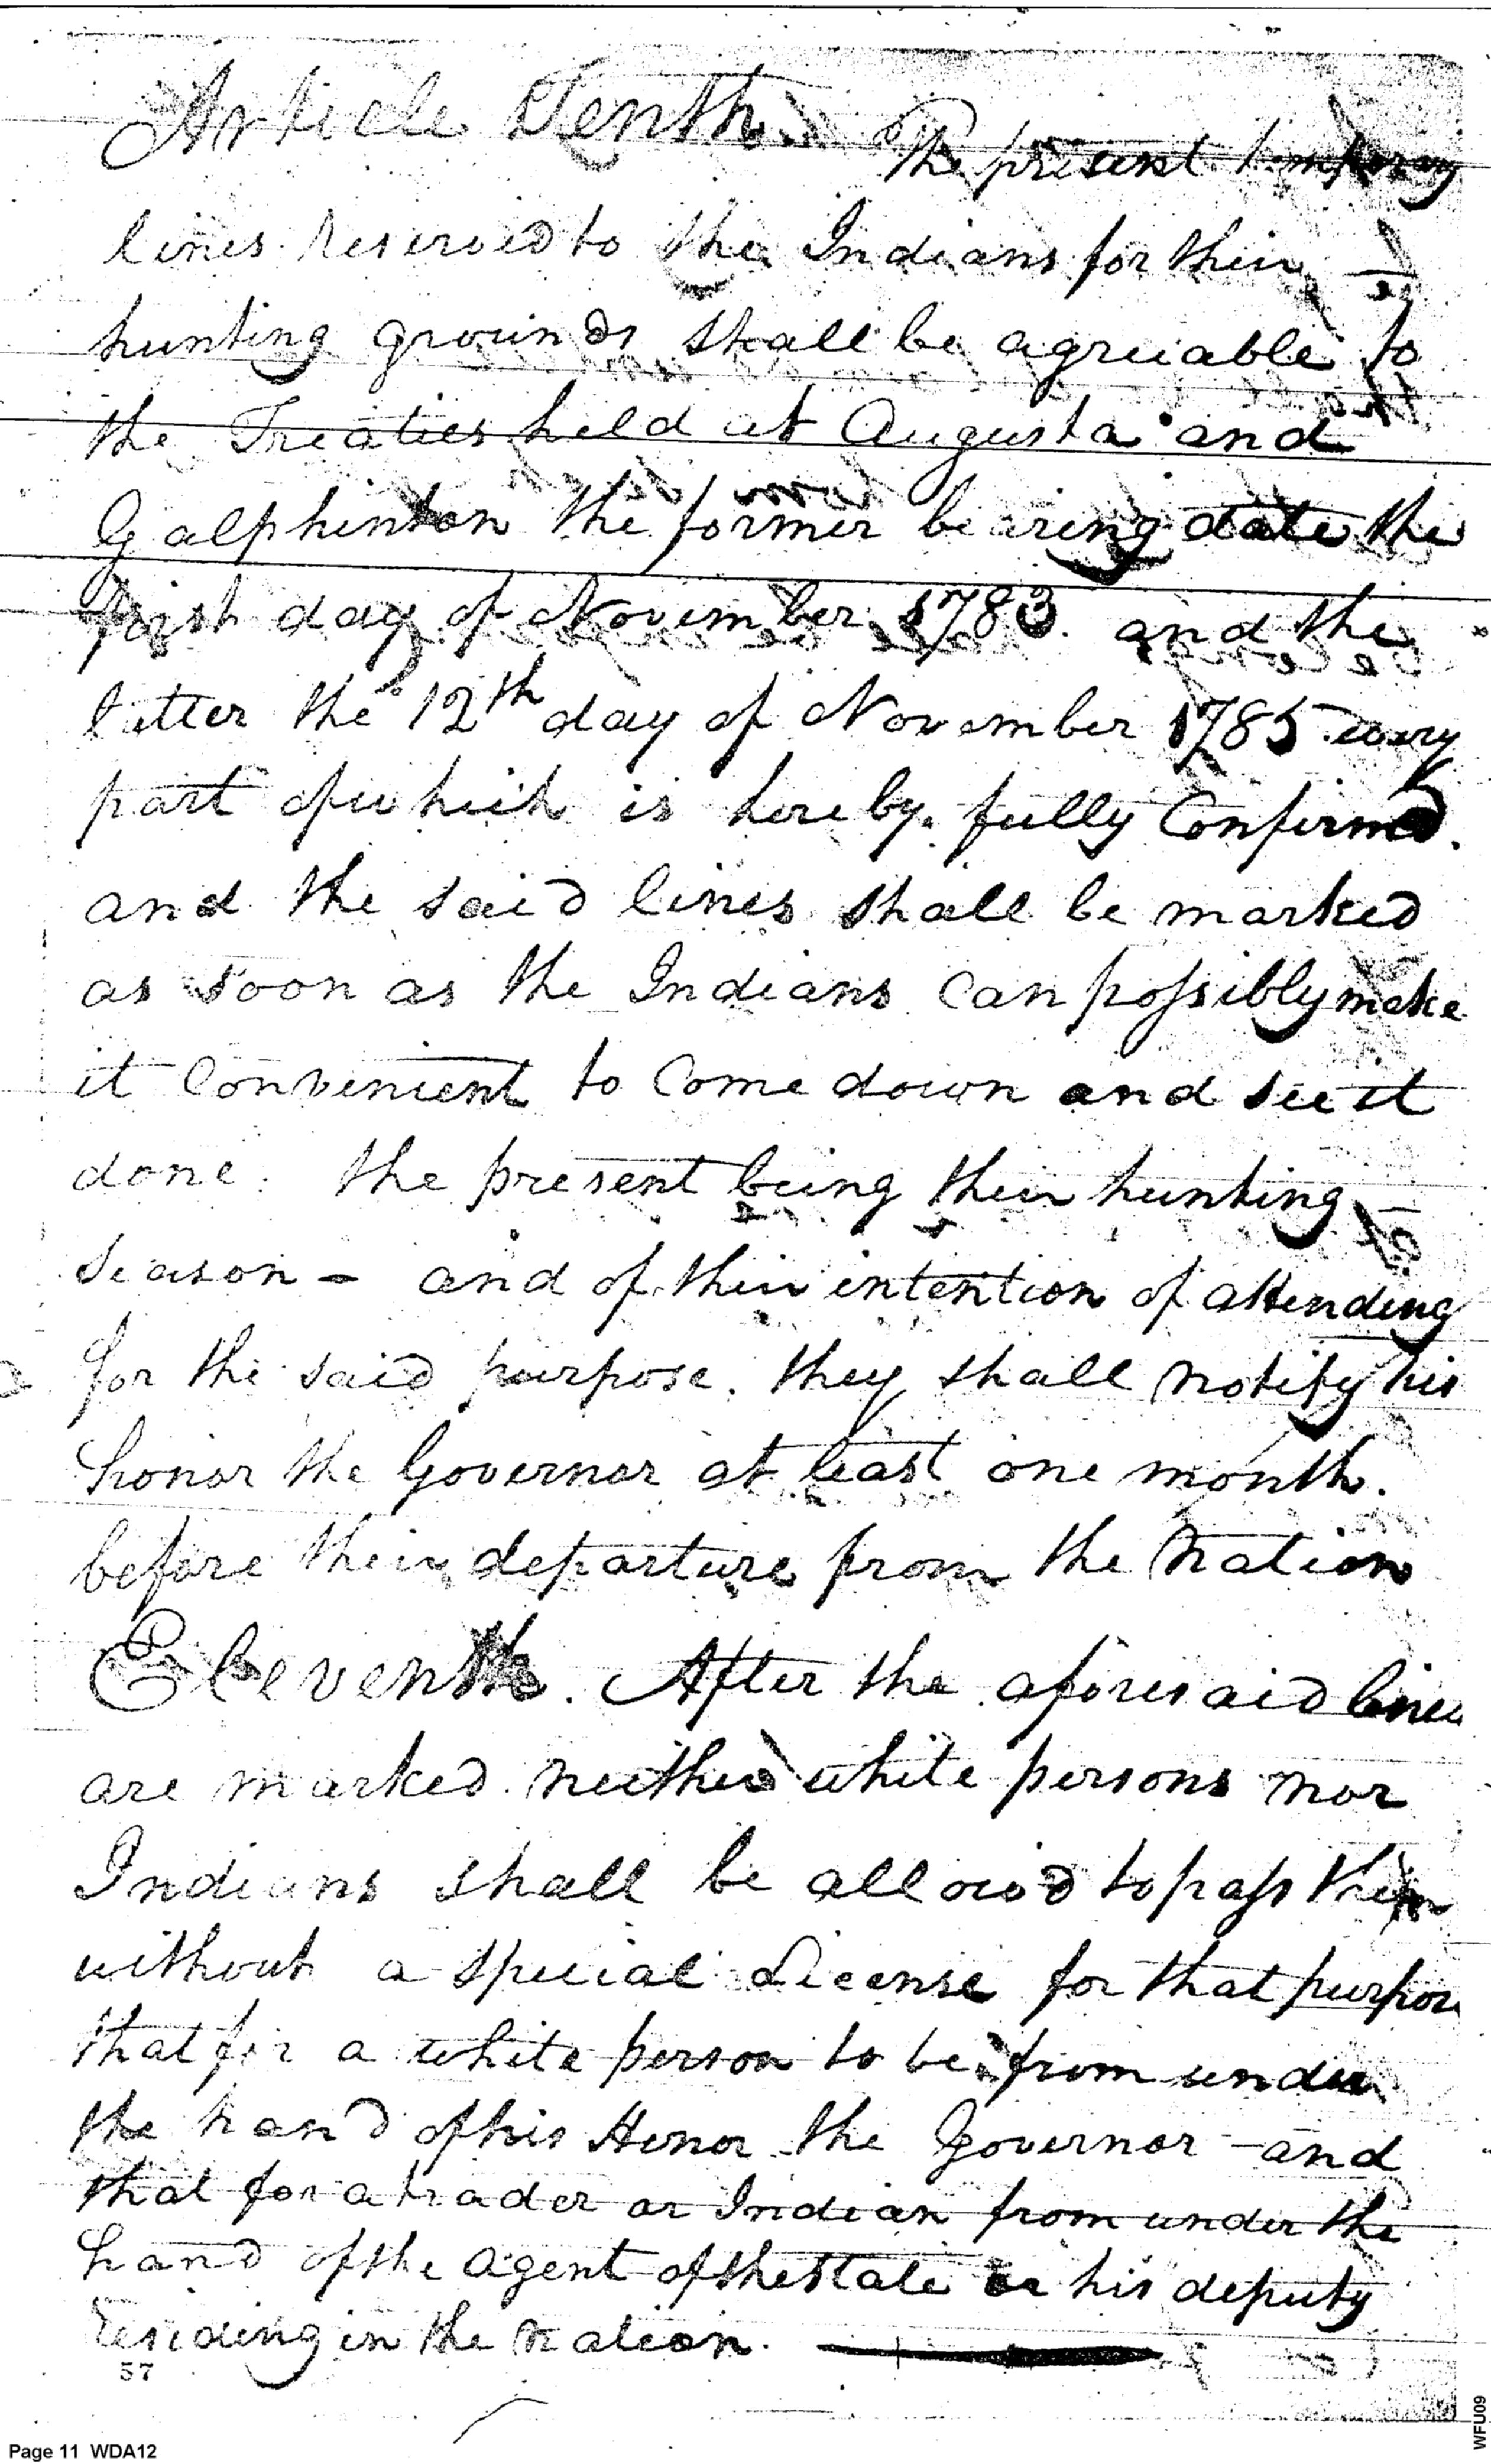 Article Tenth. The present temporary
lines reserved to the Indians for their
hunting grounds shall be agreeable to
the Treaties held at Augusta and
Galphinton the former bearing date the
first day of November 1783. and the
latter the 12th day of November 1785 every
part of which is hereby fully Confirmed.
and the said lines shall be marked
as soon as the Indians can possibly make
it Convenient to Come down and see it
done. the present being their hunting
season - and of their intention of attending
for the said purpose. they shall notify his
honor the Governor at least one month.
before their departure from the Nation
Eleventh. After the aforesaid lines
are marked neither white persons nor
Indians shall be allowed to pass them
without a special License for that purpose
that for a white person to be from under
the hand of his Honor the Governor - and
that for a trader or Indian from under the
hand of the Agent of the State or his deputy
residing in the nation.
57
Page 11 WDA12
WFU09